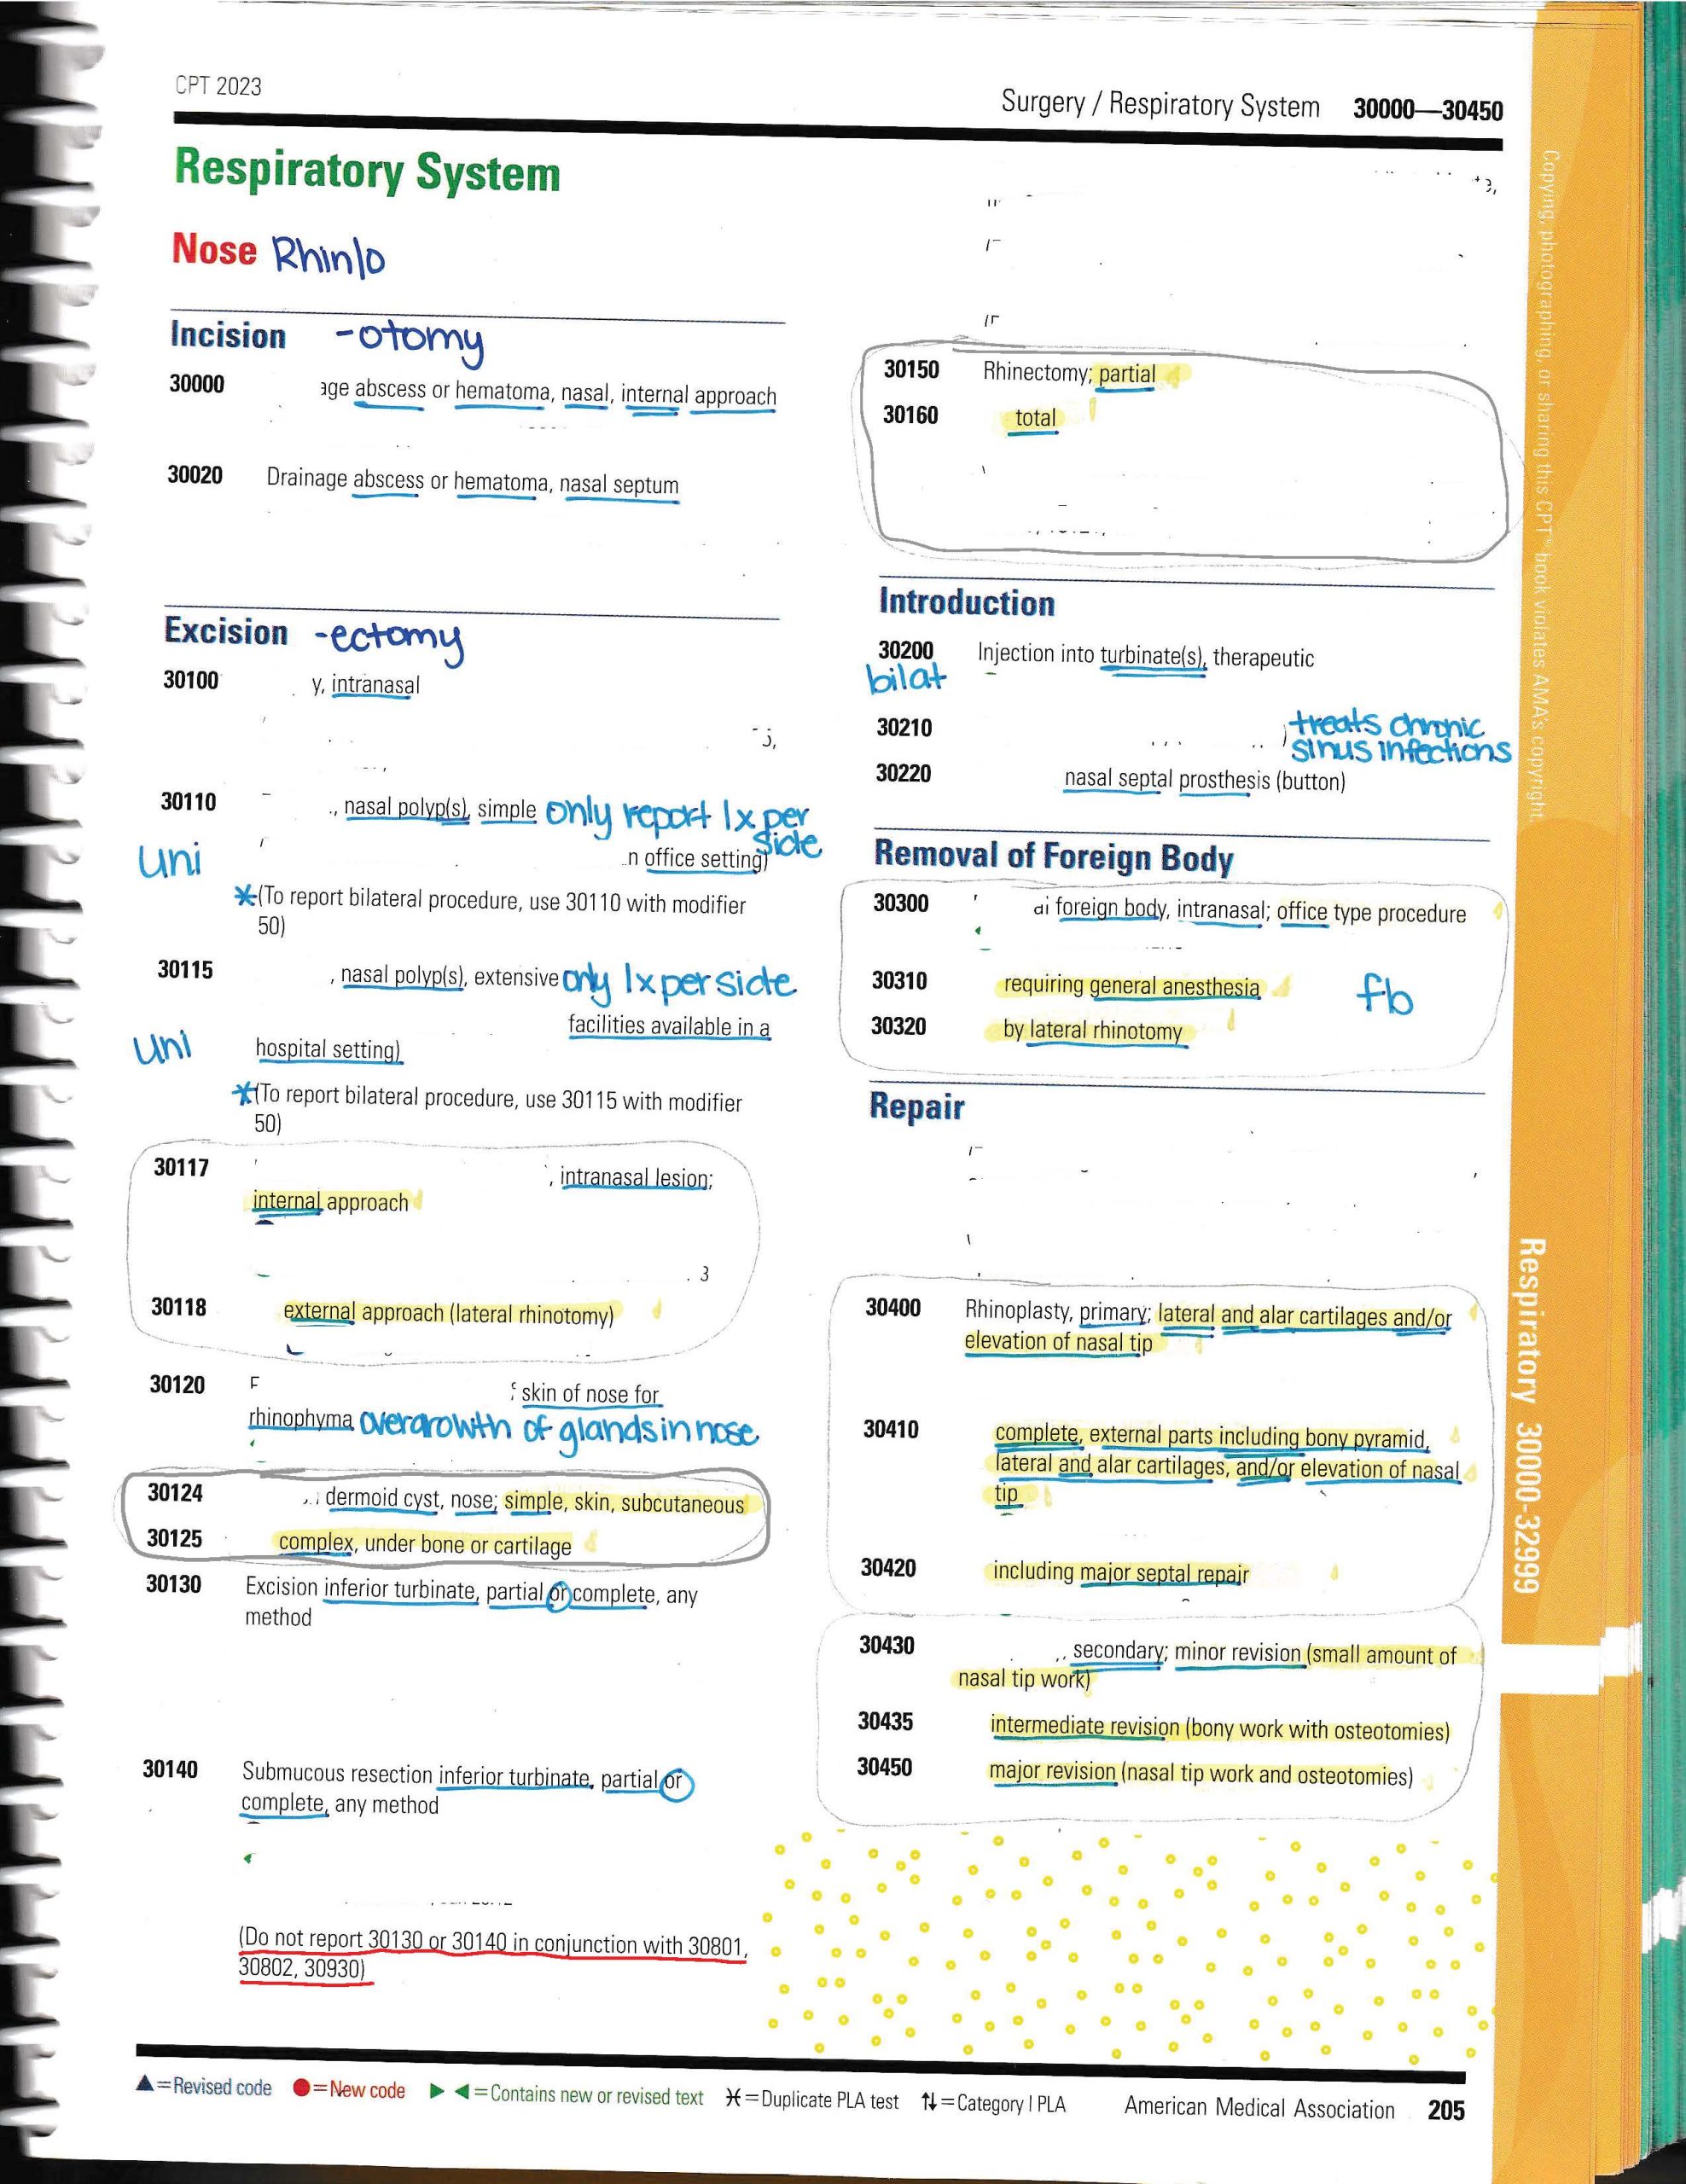 CPT 2023
Surgery / Respiratory System 30000—30450
Respiratory System
Nose Rhin|o
Incision -otomy
30000 age abscess or hematoma, nasal, internal approach
30020 Drainage abscess or hematoma, nasal septum
Excision -ectomy
30100 y, intranasal
30110 , nasal polyp(s), simple only report 1x per side
uni
n office setting)
*(To report bilateral procedure, use 30110 with modifier
50)
30115 , nasal polyp(s), extensive only 1x per side
facilities available in a
uni hospital setting)
*(To report bilateral procedure, use 30115 with modifier
50)
30117 , intranasal lesion;
internal approach
3
30118 external approach (lateral rhinotomy)
30120 skin of nose for
rhinophyma overgrowth of glands in nose
30124 dermoid cyst, nose; simple, skin, subcutaneous
30125 complex, under bone or cartilage
30130 Excision inferior turbinate, partial or complete, any
method
30140 Submucous resection inferior turbinate, partial or
complete, any method
(Do not report 30130 or 30140 in conjunction with 30801,
30802, 30930)
30150 Rhinectomy; partial
30160 total
Introduction
30200 Injection into turbinate(s), therapeutic
bilat
30210 treats chronic
sinus infections
30220 nasal septal prosthesis (button)
Removal of Foreign Body
30300 foreign body, intranasal; office type procedure
30310 requiring general anesthesia fb
30320 by lateral rhinotomy
Repair
30400 Rhinoplasty, primary; lateral and alar cartilages and/or
elevation of nasal tip
30410 complete, external parts including bony pyramid,
lateral and alar cartilages, and/or elevation of nasal
tip
30420 including major septal repair
30430 secondary; minor revision (small amount of
nasal tip work)
30435 intermediate revision (bony work with osteotomies)
30450 major revision (nasal tip work and osteotomies)
▲=Revised code ●=New code ▶ ◀=Contains new or revised text Ӿ=Duplicate PLA test ⇅=Category I PLA American Medical Association 205
Copying, photographing, or sharing this CPT® book violates AMA's copyright.
Respiratory 30000-32999